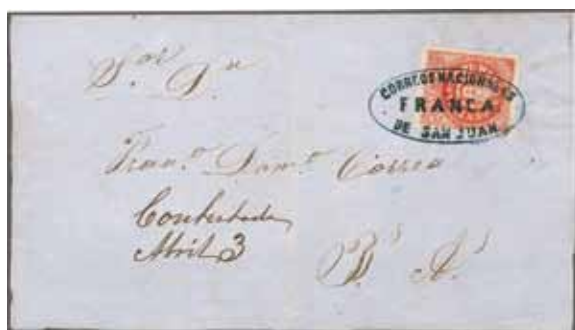 S.ᵒʳ D.ⁿ
CORREOS NACIONALES
FRANCA
DE SAN JUAN
Fran.ᶜᵒ Correa
Contestada
Abril 3
B.ˢ A.ˢ